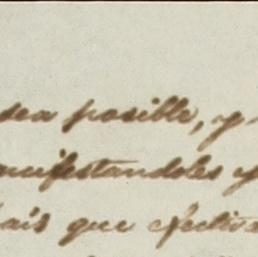 sea posible, y
nifestandoles y
ais que efectiv